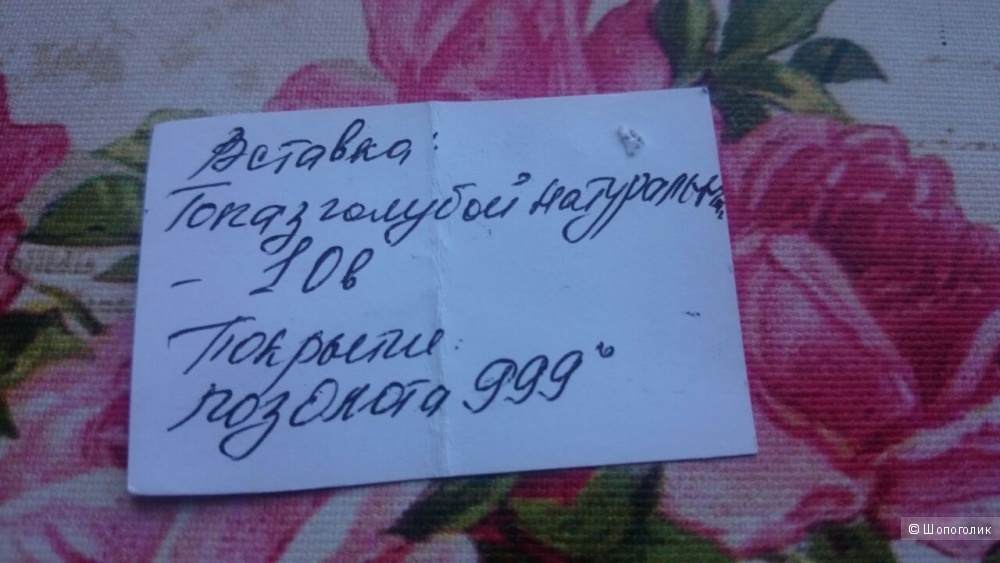 Вставка:
Топаз голубой натуральн
- 10в
Покрытие:
позолота 999°
© Шопоголик